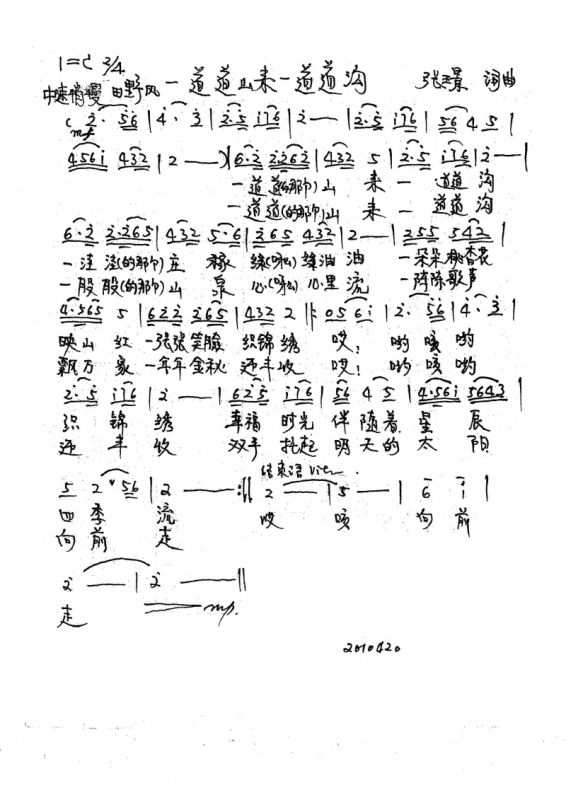 1=C 2/4
中速稍慢 田野风 一道道山来一道道沟 张璟 词曲
( 2̇· 5̇6̇ | 4̇· 3̇ | 2̇·5̇ i̇76 | 2̇ — | 2̇·5̇ i̇76 | 56 4 5 |
mf
456i̇ 432 | 2 — ) | 6·2̇ 2̇2̇62̇ | 432 5 | 2̇·5̇ i̇76 | 2̇ — |
一道道(的那个)山 来 一 道道 沟
一道道(的那个)山 来 一 道道 沟
6·2̇ 2̇·265 | 432 5·6 | 2̇65 432 | 2 — | 255 542 |
一洼洼(的那个)庄 稼 绿(呀么)绿油油 一朵朵桃杏花
一股股(的那个)山 泉 心(呀么)心里流 一阵阵歌声
4·565 5 | 62̇2̇ 2̇65 | 432 2 |: 05 6i̇ | 2̇· 5̇6̇ | 4̇· 3̇ |
映山 红 一张张笑脸 织锦绣 哎! 哟 咳 哟
飘万 家 一年年金秋 还丰收 哎! 哟 咳 哟
2̇·5̇ i̇76 | 2̇ — | 62̇5 i̇76 | 56 4 5 | 4·56i̇ 5643 |
织 锦 绣 幸福 时光 伴 随着 星 辰
还 丰 收 双手 托起 明 天的 太 阳
结束语
5 2 ˅56 | 2 — :|| 2 — | 5 — | 6 i̇ |
四 季 流 哎 咳 向 前
向 前 走
2̇ — | 2̇ — ||
走 mp.
2010420